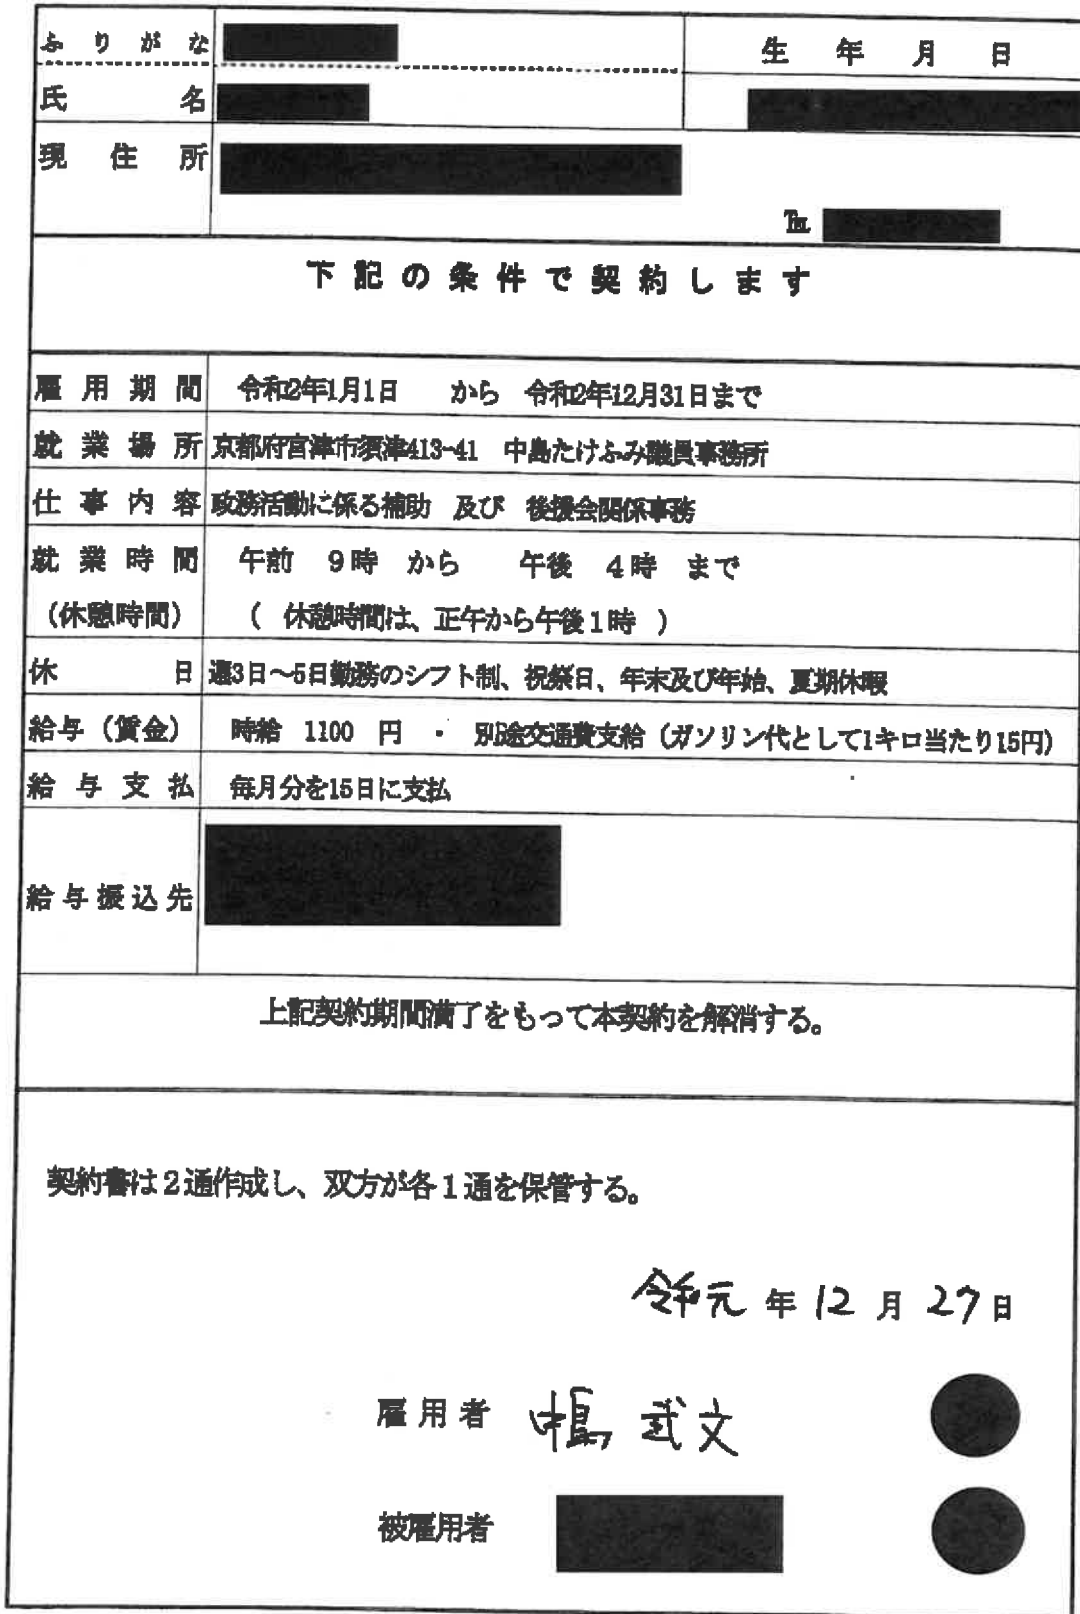 ふりがな
生年月日
氏名
現住所
℡
下記の条件で契約します
雇用期間 令和2年1月1日 から 令和2年12月31日まで
就業場所 京都府宮津市須津413-41 中島たけふみ議員事務所
仕事内容 政務活動に係る補助 及び 後援会関係事務
就業時間 午前 9時 から 午後 4時 まで
(休憩時間) ( 休憩時間は、正午から午後1時 )
休日 週3日~5日勤務のシフト制、祝祭日、年末及び年始、夏期休暇
給与(賃金) 時給 1100 円 ・ 別途交通費支給(ガソリン代として1キロ当たり15円)
給与支払 毎月分を15日に支払
給与振込先
上記契約期間満了をもって本契約を解消する。
契約書は2通作成し、双方が各1通を保管する。
令和元年12月27日
雇用者 中島 武文
被雇用者